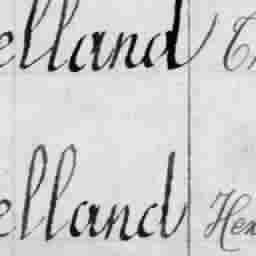 elland
elland Hex